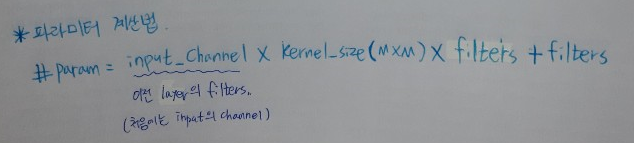 * 파라미터 계산법.
# param = input_Channel X kernel_size(M×M) X filters + filters
이전 layer의 filters.
(처음에는 input의 channel)